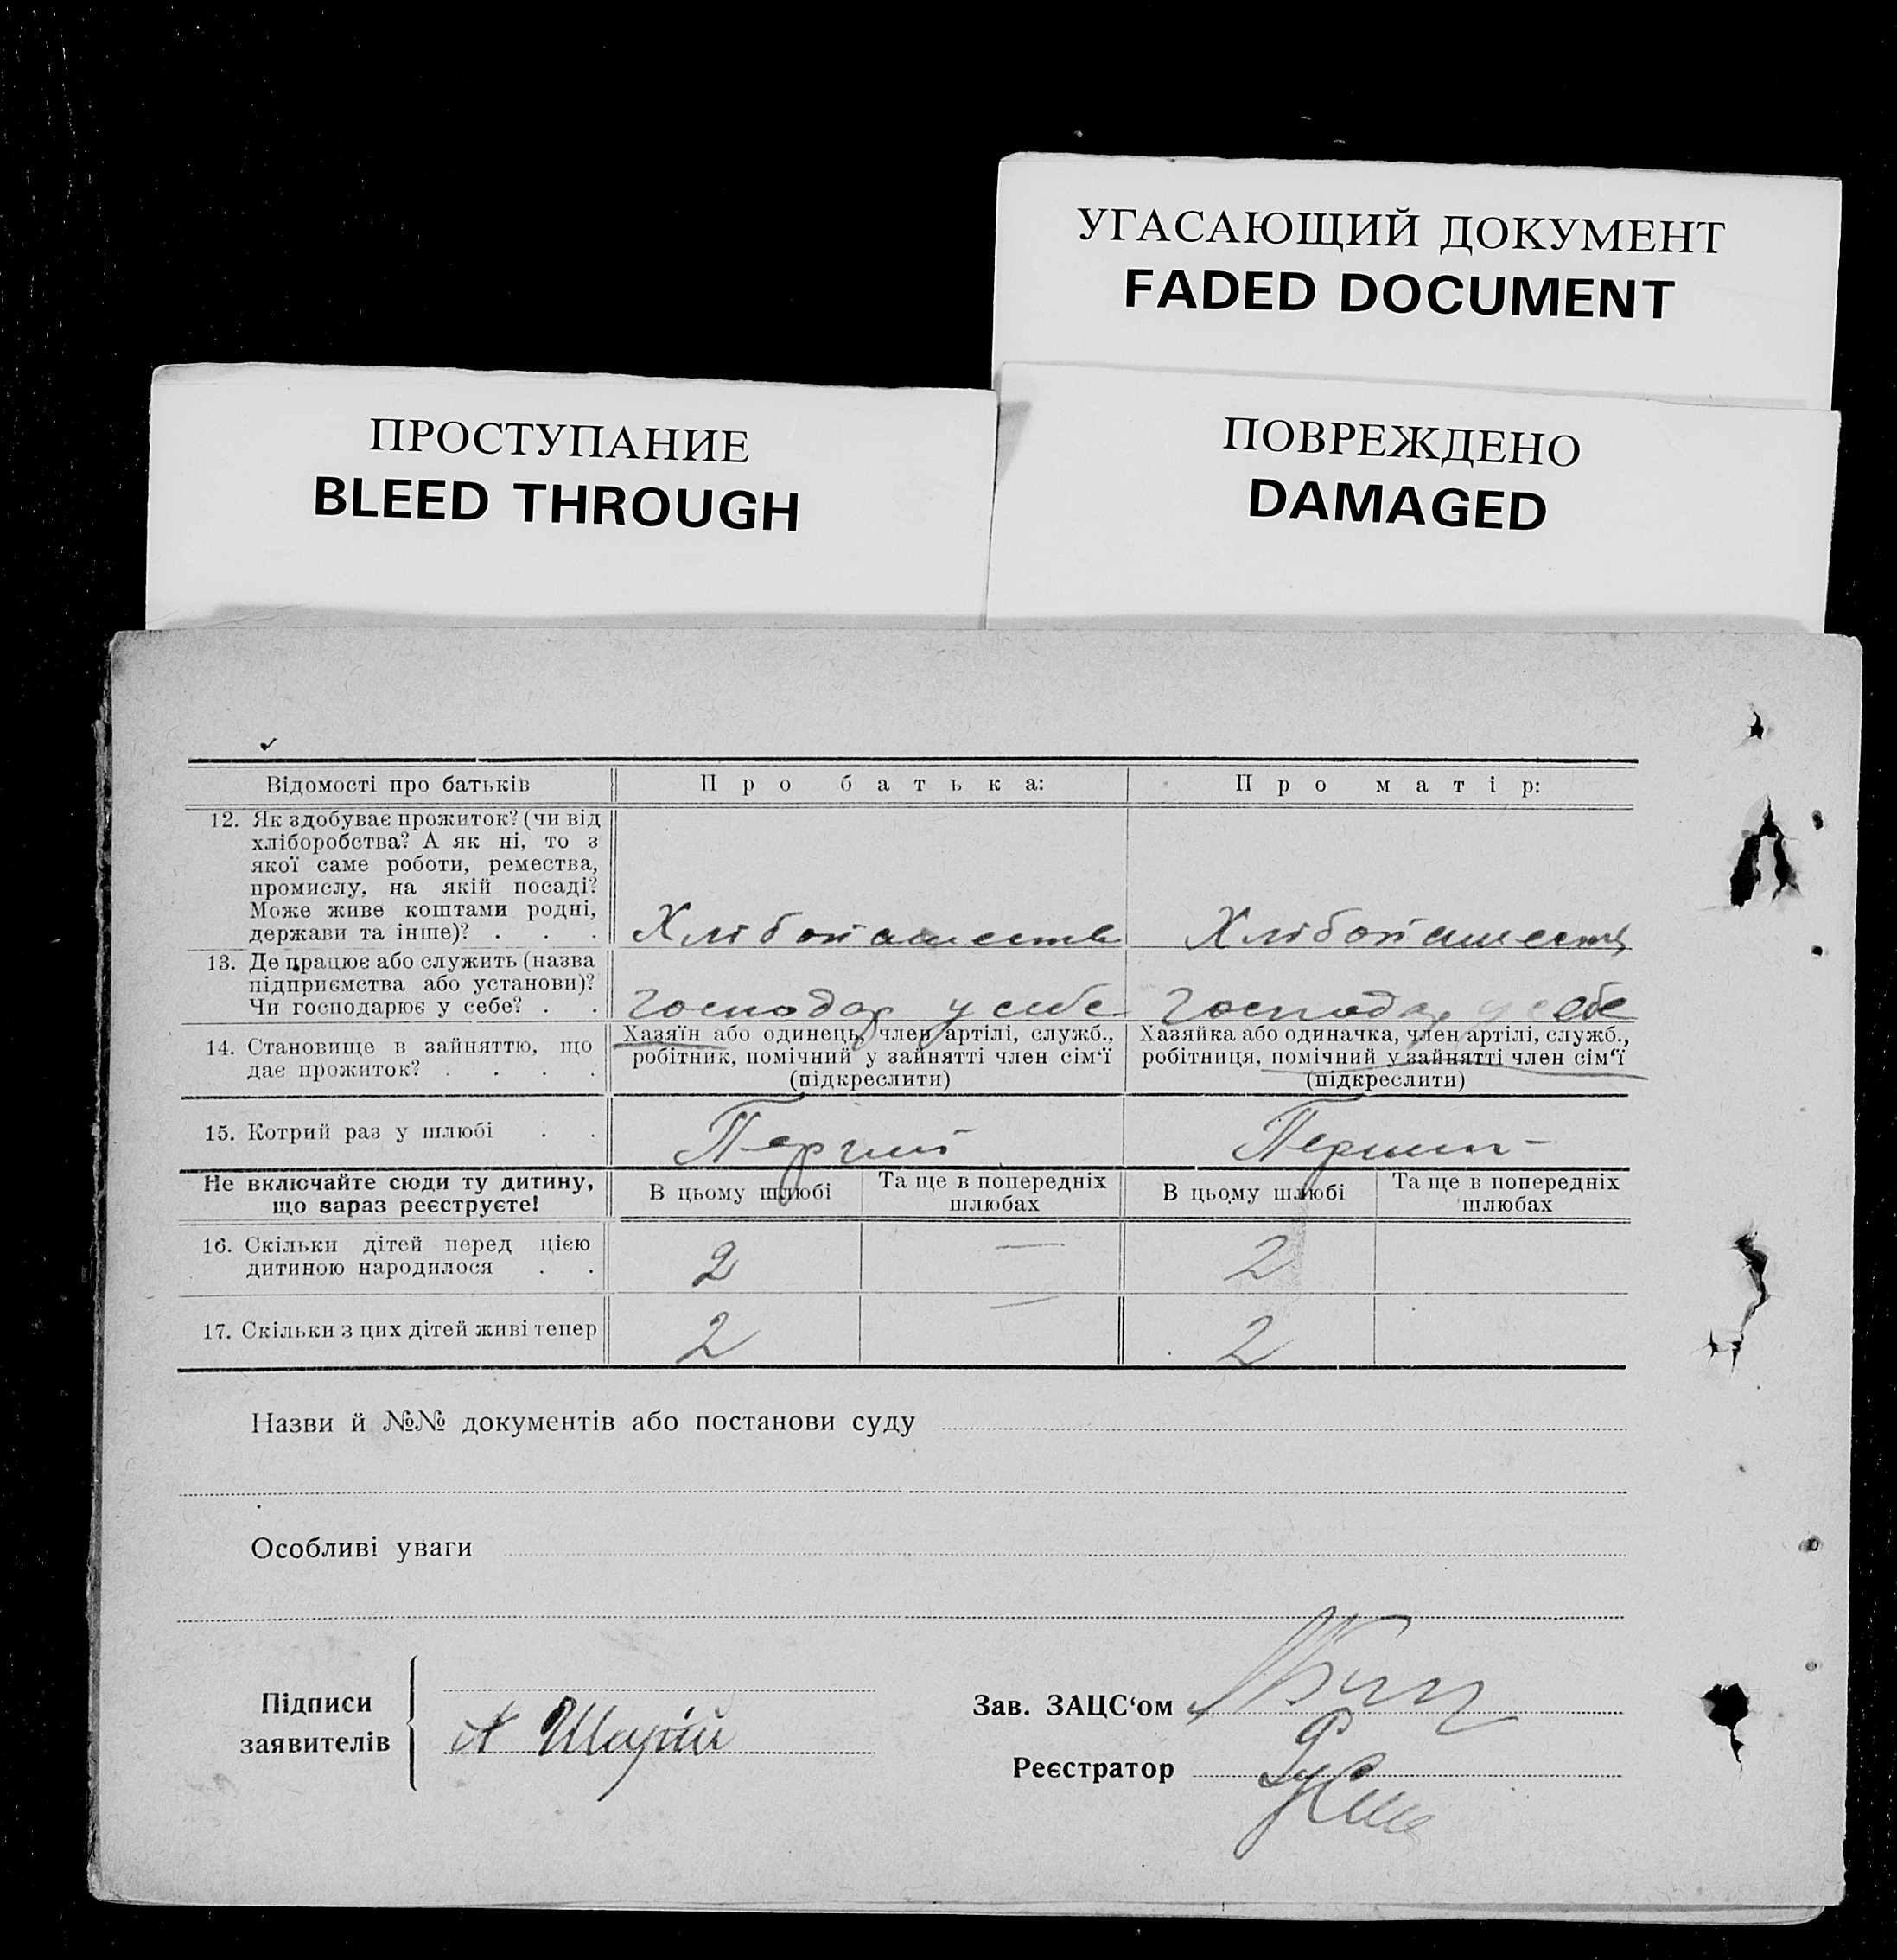 УГАСАЮЩИЙ ДОКУМЕНТ
FADED DOCUMENT
ПРОСТУПАНИЕ
BLEED THROUGH
ПОВРЕЖДЕНО
DAMAGED
Відомості про батьків
Про батька:
Про матір:
12. Як здобуває прожиток? (чи від
хліборобства? А як ні, то з
якої саме роботи, ремества,
промислу, на якій посаді?
Може живе коштами родні,
держави та інше)? . . .
Хлібопашеств
Хлібопашеств
13. Де працює або служить (назва
підприємства або установи)?
Чи господарює у себе? . .
господар у себе
господар у себе
14. Становище в зайняттю, що
дає прожиток? . . . .
Хазяїн або одинець, член артілі, служб.,
робітник, помічний у зайнятті член сім'ї
(підкреслити)
Хазяйка або одиначка, член артілі, служб.,
робітниця, помічний у зайнятті член сім'ї
(підкреслити)
15. Котрий раз у шлюбі . .
Перший
Перший
Не включайте сюди ту дитину,
що зараз реєструєте!
В цьому шлюбі
Та ще в попередніх
шлюбах
В цьому шлюбі
Та ще в попередніх
шлюбах
16. Скільки дітей перед цією
дитиною народилося . .
2
—
2
17. Скільки з цих дітей живі тепер
2
—
2
Назви й №№ документів або постанови суду
Особливі уваги
Підписи
заявителів
А Шарій
Зав. ЗАЦС'ом
Реєстратор